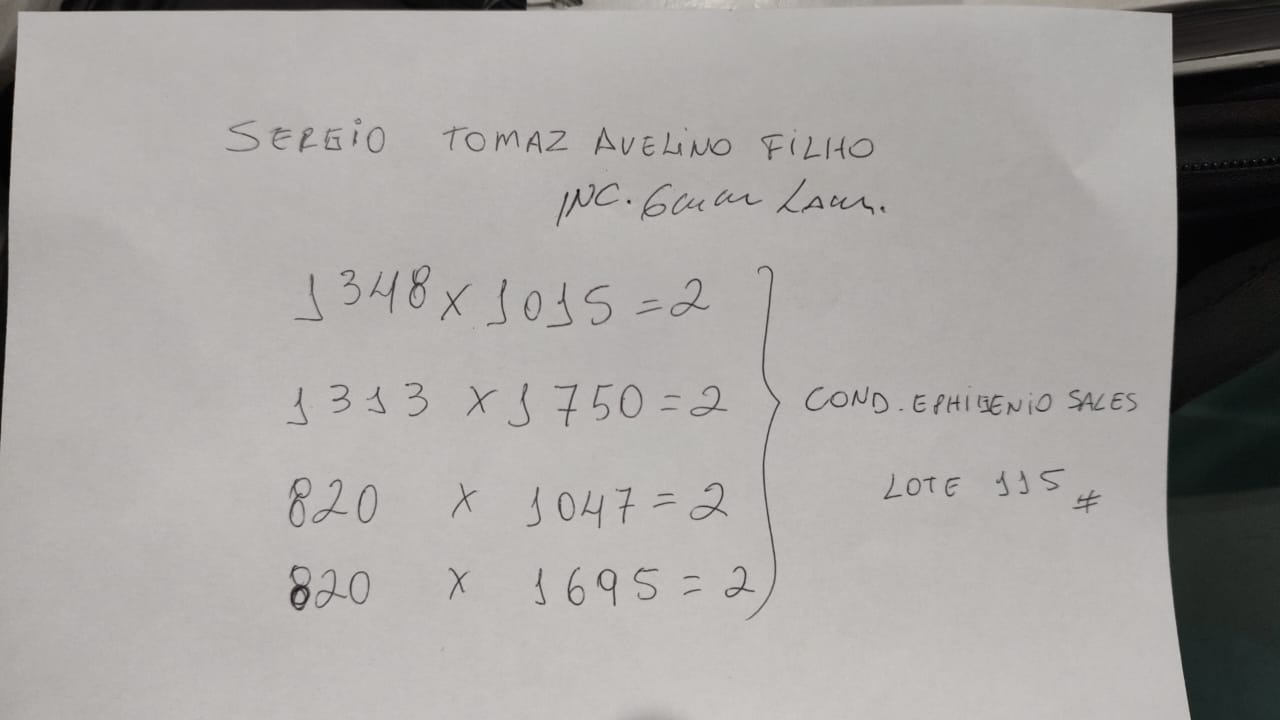 SERGIO TOMAZ AVELINO FILHO
INC. 6mm LAM.
1348 x 1015 = 2
1313 x 1750 = 2
820 x 1047 = 2
820 x 1695 = 2
COND. EPHIGENIO SALES
LOTE 115 #